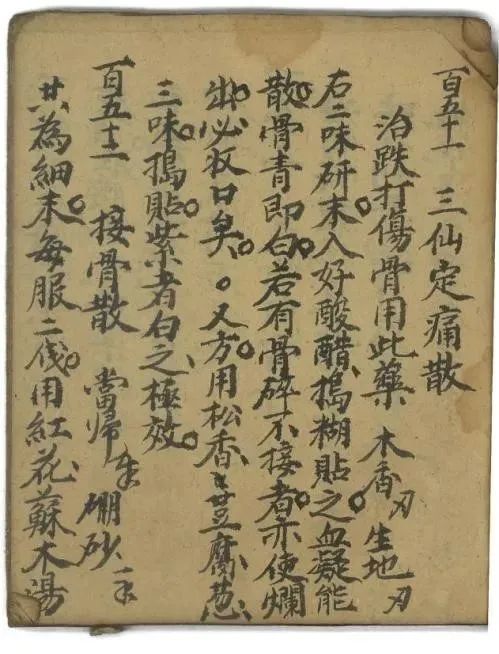 百五十一 三仙定痛散
治跌打傷骨用此藥 木香刄 生地刄
右二味研末入好酸醋搗糊貼之。血凝能
散。骨青即白。若有骨碎不接者。亦使爛
出。必收口矣。。又方用松香 豆腐葱
三味。搗貼。紫者白之極效。
百五十二 接骨散 當歸 硼砂
共為細末。每服二 用紅花蘇木湯